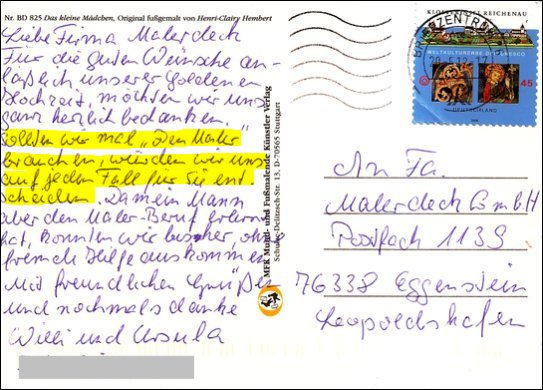 Nr. BD 825 Das kleine Mädchen, Original fußgemalt von Henri-Clairy Hembert
Liebe Firma Malerdeck
Für die guten Wünsche an-
läßlich unserer goldenen
Hochzeit, möchten wir uns
ganz herzlich bedanken.
Sollten wir mal "den Maler"
brauchen, würden wir uns
auf jeden Fall für Sie ent-
scheiden. Da mein Mann
aber den Maler-Beruf gelernt
hat, konnten wir bisher, ohne
fremde Hilfe auskommen
Mit freundlichen Grüßen
und nochmals danke
Willi und Ursula
MFK Mund- und Fußmalende Künstler Verlag
Schulze-Delitzsch-Str. 13, D-70565 Stuttgart
KLOSTERINSEL REICHENAU
WELTKULTURERBE DER UNESCO
45
DEUTSCHLAND
BRIEFZENTRUM
An Fa.
Malerdeck GmbH
Postfach 1139
76338 Eggenstein
Leopoldshafen